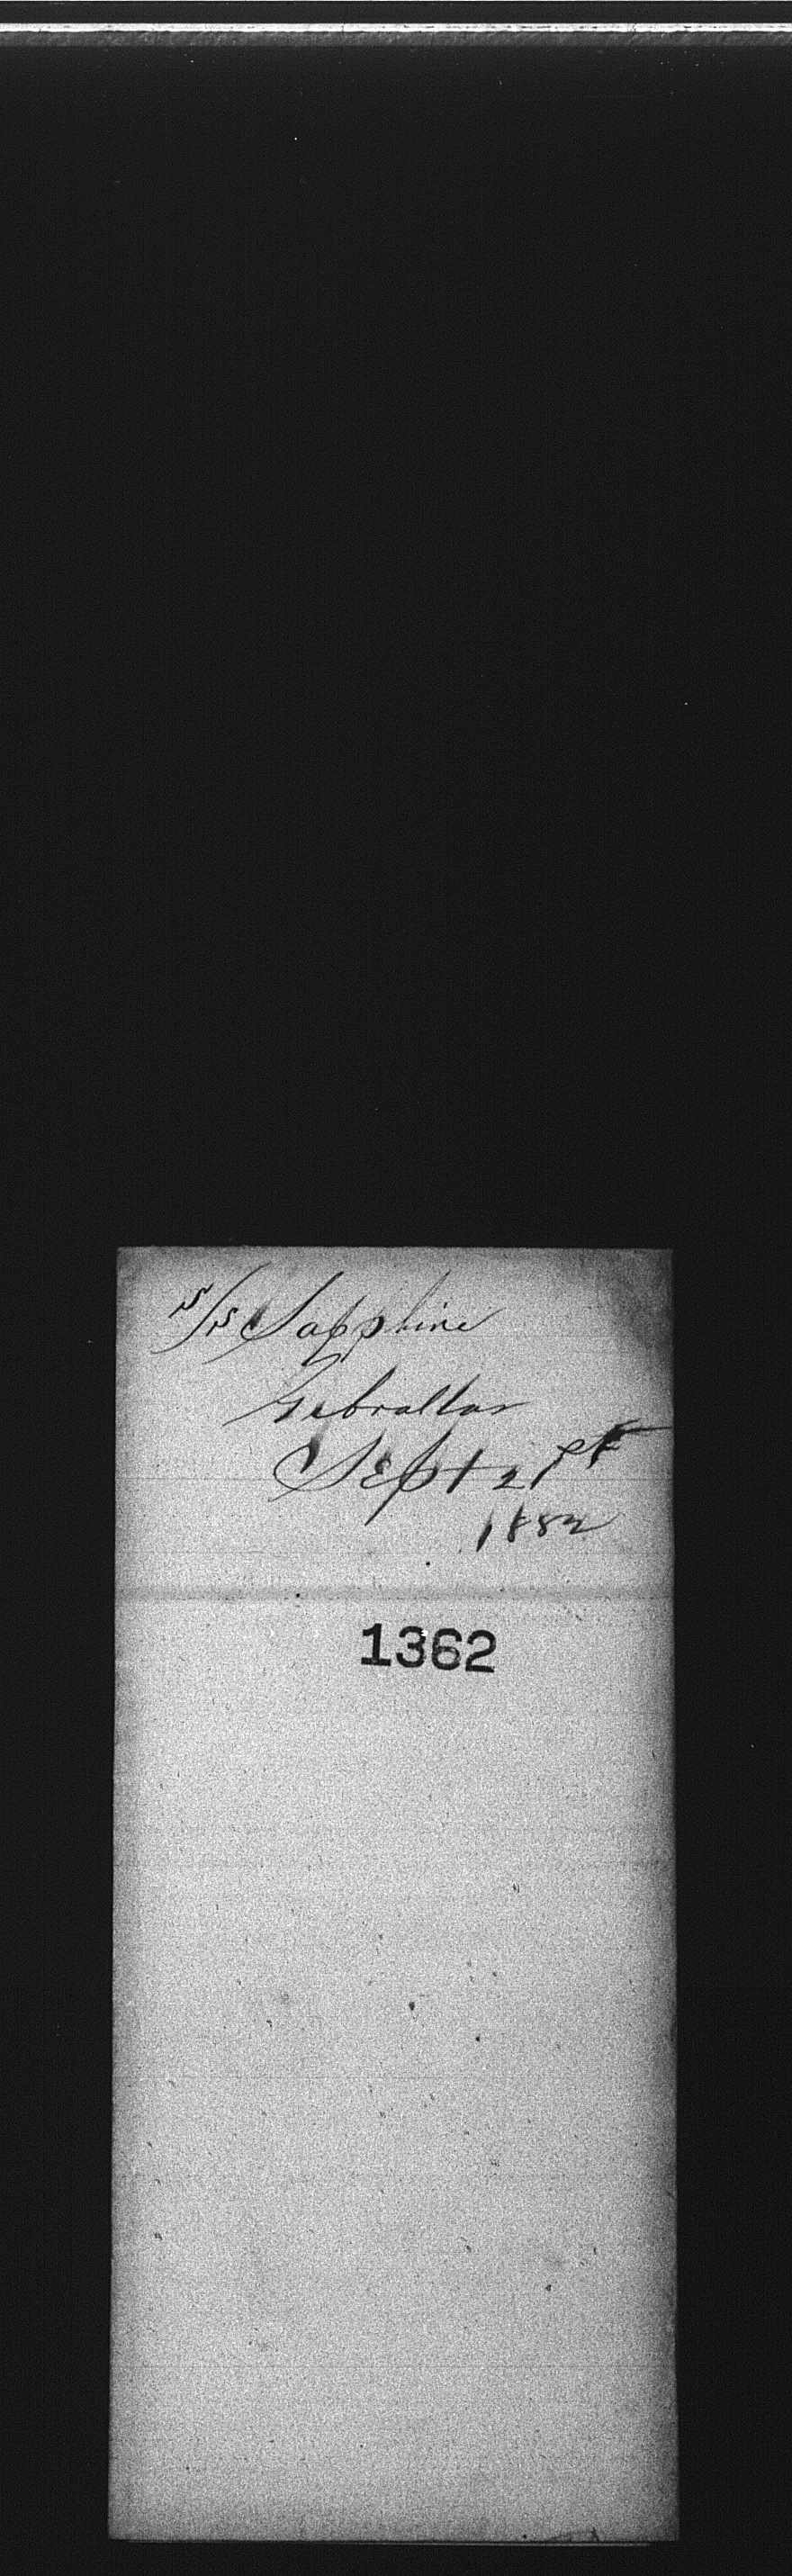 S/S Sapphire
Gibraltar
Sept 21st
1882
1362